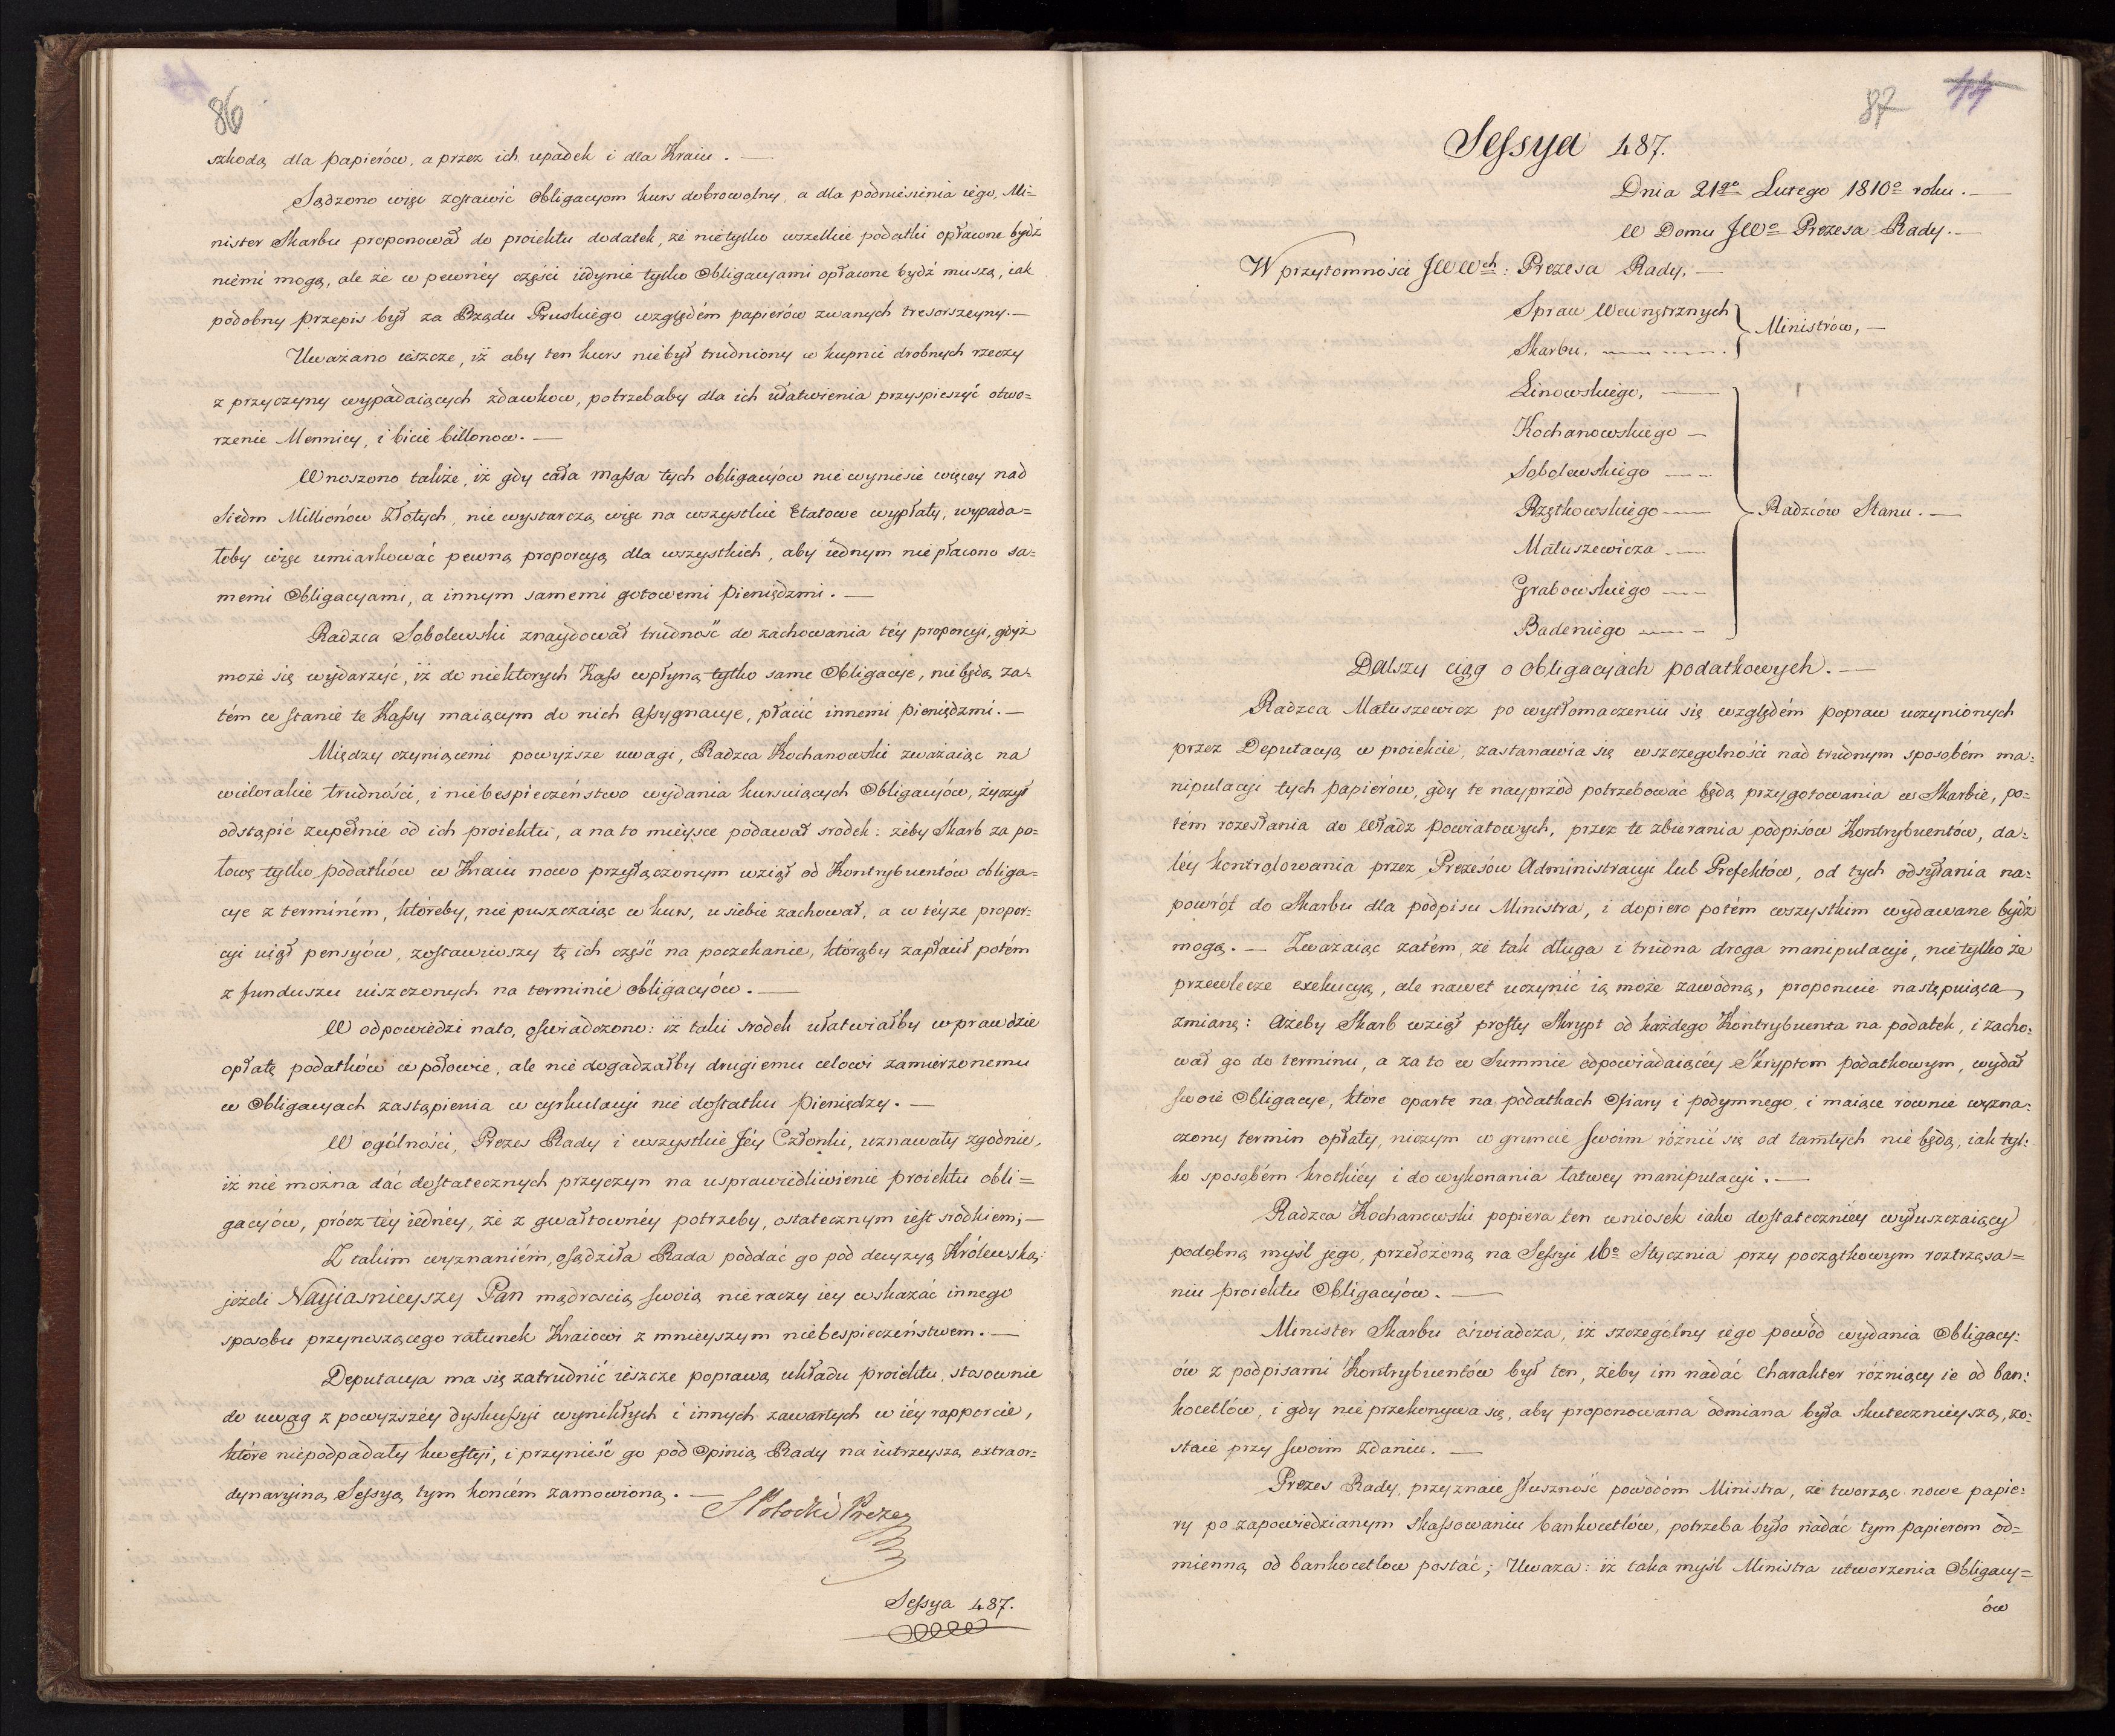 86
szkodą dla papierów, a przez ich upadek i dla Kraiu. —
Sądzono więc zostawić Obligacyom kurs dobrowolny, a dla podniesienia iego, Mi=
nister Skarbu proponował do proiektu dodatek, że nietylko wszelkie podatki opłacone bydź
niémi mogą, ale że w pewnéy części iédynie tylko Obligacyami opłacone bydź muszą, iak
podobny przepis był za Rządu Pruskiego względém papierów zwanych tresorszeyny. —
Uważano ieszcze, iż aby ten kurs niebył trudniony w kupnie drobnych rzeczy
z przyczyny wypadaiących zdawkow, potrzebaby dla ich ułatwienia przyspieszyć otwo=
rzenie Mennicy, i bicie billonow. —
Wnoszono także, iż gdy cała massa tych obligacyów nie wyniesie więcey nad
siedm Millionów Złotych, nie wystarczą więc na wszystkie Etatowe wypłaty, wypada=
łoby więc umiarkować pewną proporcyą dla wszystkich, aby iednym nie płacono sa=
memi Obligacyami, a innym samemi gotowemi pieniędzmi. —
Radzca Sobolewski znaydował trudność do zachowania téy proporcyi, gdyż
może się wydarzyć, iż do niektorych Kass wpłyną tylko same Obligacye, nie będą za=
tém w stanie te Kassy maiącym do nich assygnacye, płacić innemi pieniędzmi. —
Między czyniącemi powyższe uwagi, Radzca Kochanowski zważaiąc na
wielorakie trudności, i niebespieczeństwo wydania kursuiących Obligacyów, życzył
odstąpić zupełnie od ich proiektu, a na to mieysce podawał srodek: żeby Skarb za po=
łowę tylko podatków w Kraiu nowo przyłączonym wziął od Kontrybuentów obliga=
cye z terminém, któreby, nie puszczaiąc w kurs, u siebie zachował, a w téyże propor=
cyi uiął pensyów, zostawiwszy tę ich część na poczekanie, którąby zapłacił potém
z funduszu uiszczonych na terminie obligacyów. —
W odpowiedzi nato, oswiadczono: iż taki srodek ułatwiałby wprawdzie
opłatę podatków w połowie, ale nie dogadzałby drugiemu celowi zamierzonemu
w Obligacyach zastąpienia w cyrkulacyi nie dostatku pieniędzy. —
W ogólności, Prezes Rady i wszystkie Jéy Członki, uznawały zgodnie,
iż nie można dać dostatecznych przyczyn na usprawiedliwienie proiektu obli=
gacyów, prócz téy iednéy, że z gwałtownéy potrzeby, ostatecznym iest srodkiem; —
Z takim wyznaniém, osądziła Rada poddać go pod decyzyą Królewską,
jeżeli Nayiasnieyszy Pan mądroscią swoią nie raczy iey wskazać innego
sposobu przynoszącego ratunek Kraiowi z mnieyszym niebespieczeństwem. —
Deputacya ma się zatrudnić ieszcze poprawą układu proiektu, stosownie
do uwag z powyższéy dyskussyi wynikłych i innych zawartych w iéy rapporcie,
które niepodpadały kwestyi, i przynieść go pod Opinią Rady na iutrzeyszą extraor=
dynaryiną Sessyą tym końcém zamowioną. —
S Potocki Prezes
Sessya 487.
87 44
Sessya 487.
Dnia 21go Lutego 1810o roku. —
W Domu JWo Prezesa Rady. —
W przytomności JWWch: Prezesa Rady, —
Spraw Wewnętrznych
Skarbu,
Ministrów, —
Linowskiego,
Kochanowskiego
Sobolewskiego
Rzętkowskiego
Matuszewicza
Grabowskiego
Badeniego
Radzców Stanu. —
Dalszy ciąg o obligacyach podatkowych. —
Radzca Matuszewicz po wytłomaczeniu się względém popraw uczynionych
przez Deputacyą w proiekcie, zastanawia się wszczegolności nad trudnym sposobém ma=
nipulacyi tych papierów, gdy te nayprzód potrzebować będą przygotowania w Skarbie, po=
tem rozesłania do Władz powiatowych, przez te zbierania podpisów Kontrybuentów, da=
léy kontrolowania przez Prezesów Administracyi lub Prefektów, od tych odsyłania na=
powrót do Skarbu dla podpisu Ministra, i dopiero potém wszystkim wydawane bydź
mogą. — Zważaiąc zatém, że tak długa i trudna droga manipulacyi, nietylko że
przewlecze exekucyą, ale nawet uczynić ią może zawodną, proponuie następuiącą
zmianę: Ażeby Skarb wziął prosty Skrypt od każdego Kontrybuenta na podatek, i zacho=
wał go do terminu, a za to w Summie odpowiadaiącéy Skryptom podatkowym, wydał
swoie Obligacye, które oparte na podatkach Ofiary i podymnego, i maiące rownie wyzna=
czony termin opłaty, niczym w gruncie swoim różnić się od tamtych nie będą, iak tyl=
ko sposobém krotkiéy i do wykonania łatwey manipulacyi. —
Radzca Kochanowski popiera ten wniosek iako dostateczniey wyłuszczaiący
podobną myśl jego, przełożoną na Sessyi 16o Stycznia przy początkowym roztrząsa=
niu proiektu Obligacyów. —
Minister Skarbu oświadcza, iż szczególny iego powód wydania Obligacy=
ów z podpisami Kontrybuentów był ten, żeby im nadać charakter różniący ie od ban=
kocetlów, i gdy nie przekonywa się, aby proponowana odmiana była skutecznieyszą, zo=
staie przy swoim zdaniu. —
Prezes Rady, przyznaie słuszność powodóm Ministra, że tworząc nowe papie=
ry po zapowiedzianym skassowaniu bankocetlów, potrzeba było nadać tym papierom od=
mienną od bankocetlow postać; Uważa: iż taka myśl Ministra utworzenia Obligacy=
ów